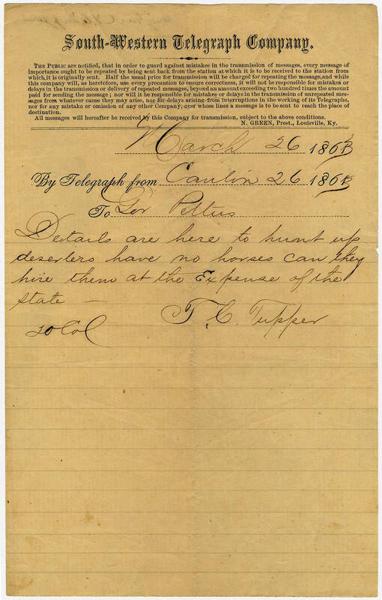 South-Western Telegraph Company.
THE PUBLIC are notified, that in order to guard against mistakes in the transmission of messages, every message of
importance ought to be repeated by being sent back from the station at which it is to be received to the station from
which it is originally sent. Half the usual price for transmission will be charged for repeating the message, and while
this company will, as heretofore, use every precaution to ensure correctness, it will not be responsible for mistakes or
delays in the transmission or delivery of repeated messages, beyond an amount exceeding two hundred times the amount
paid for sending the message; nor will it be responsible for mistakes or delays in the transmission of unrepeated mes-
sages from whatever cause they may arise, nor for delays arising from interruptions in the working of its Telegraphs,
nor for any mistake or omission of any other company, over whose lines a message is to be sent to reach the place of
destination.
All messages will hereafter be received by this Company for transmission, subject to the above conditions.
N. GREEN, Prest., Louisville, Ky.
March 26 1863
By Telegraph from Canton 26 186
To Gov Pettus
Details are here to hunt up
deserters have no horses can they
hire them at the Expense of the
state —
T. C. Tupper
20 Col